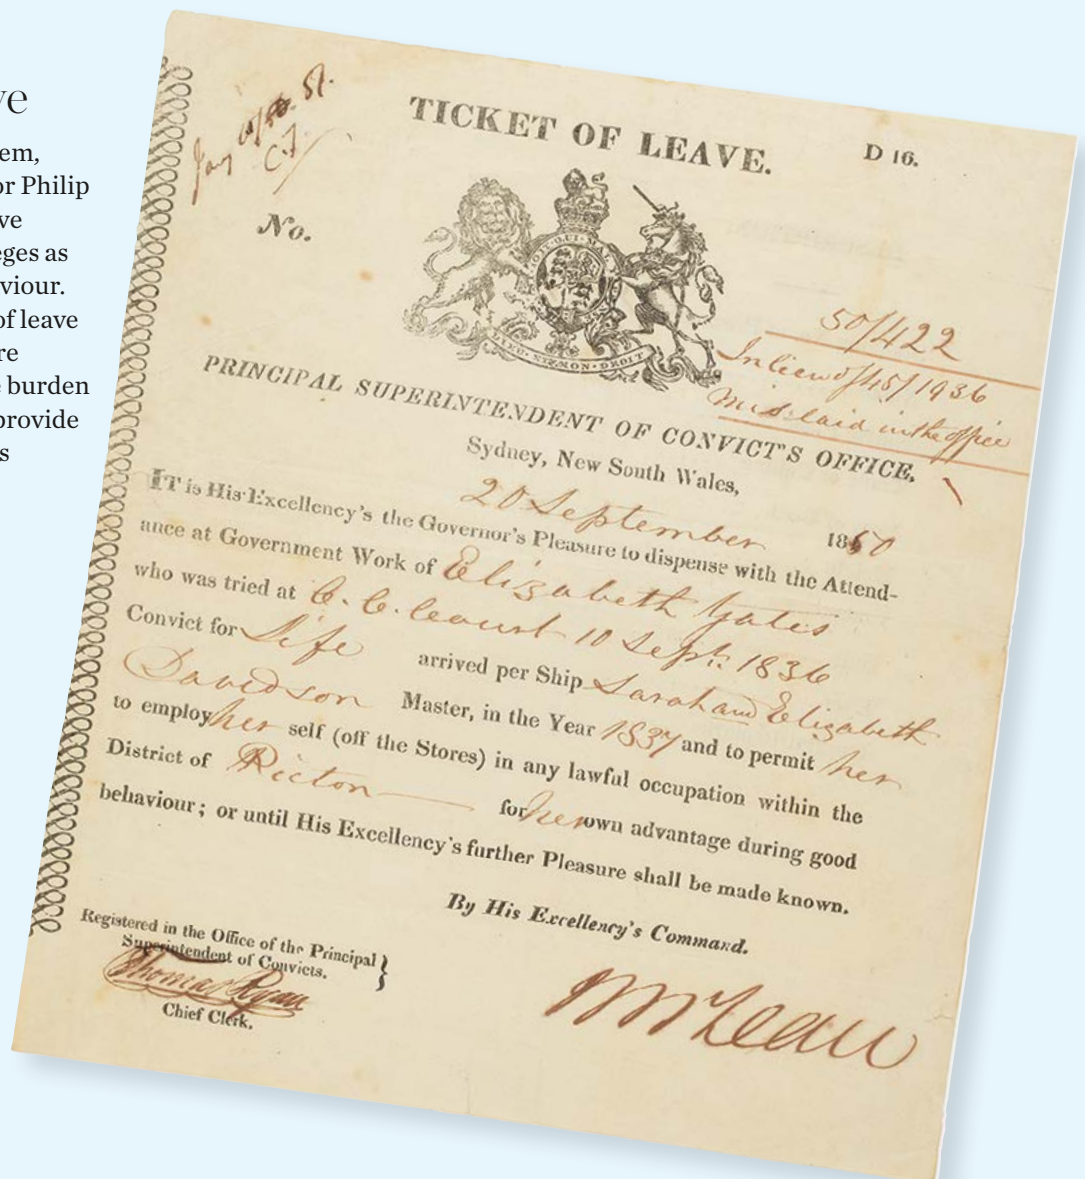 ve
em,
or Philip
ve
eges as
viour.
of leave
re
e burden
provide
s
C.F.
TICKET OF LEAVE.
D 16.
No.
50/422
In lieu of 45/1936
mislaid in the office
PRINCIPAL SUPERINTENDENT OF CONVICT'S OFFICE,
Sydney, New South Wales,
20 September 1850
IT is His Excellency's the Governor's Pleasure to dispense with the Attend-
ance at Government Work of Elizabeth Yates
who was tried at C. C. Court 10 Sept. 1836
Convict for Life arrived per Ship Sarah and Elizabeth
Davidson Master, in the Year 1837 and to permit her
to employ her self (off the Stores) in any lawful occupation within the
District of Picton for her own advantage during good
behaviour; or until His Excellency's further Pleasure shall be made known.
By His Excellency's Command.
Registered in the Office of the Principal
Superintendent of Convicts.
Thomas Ryan
Chief Clerk.
McLean